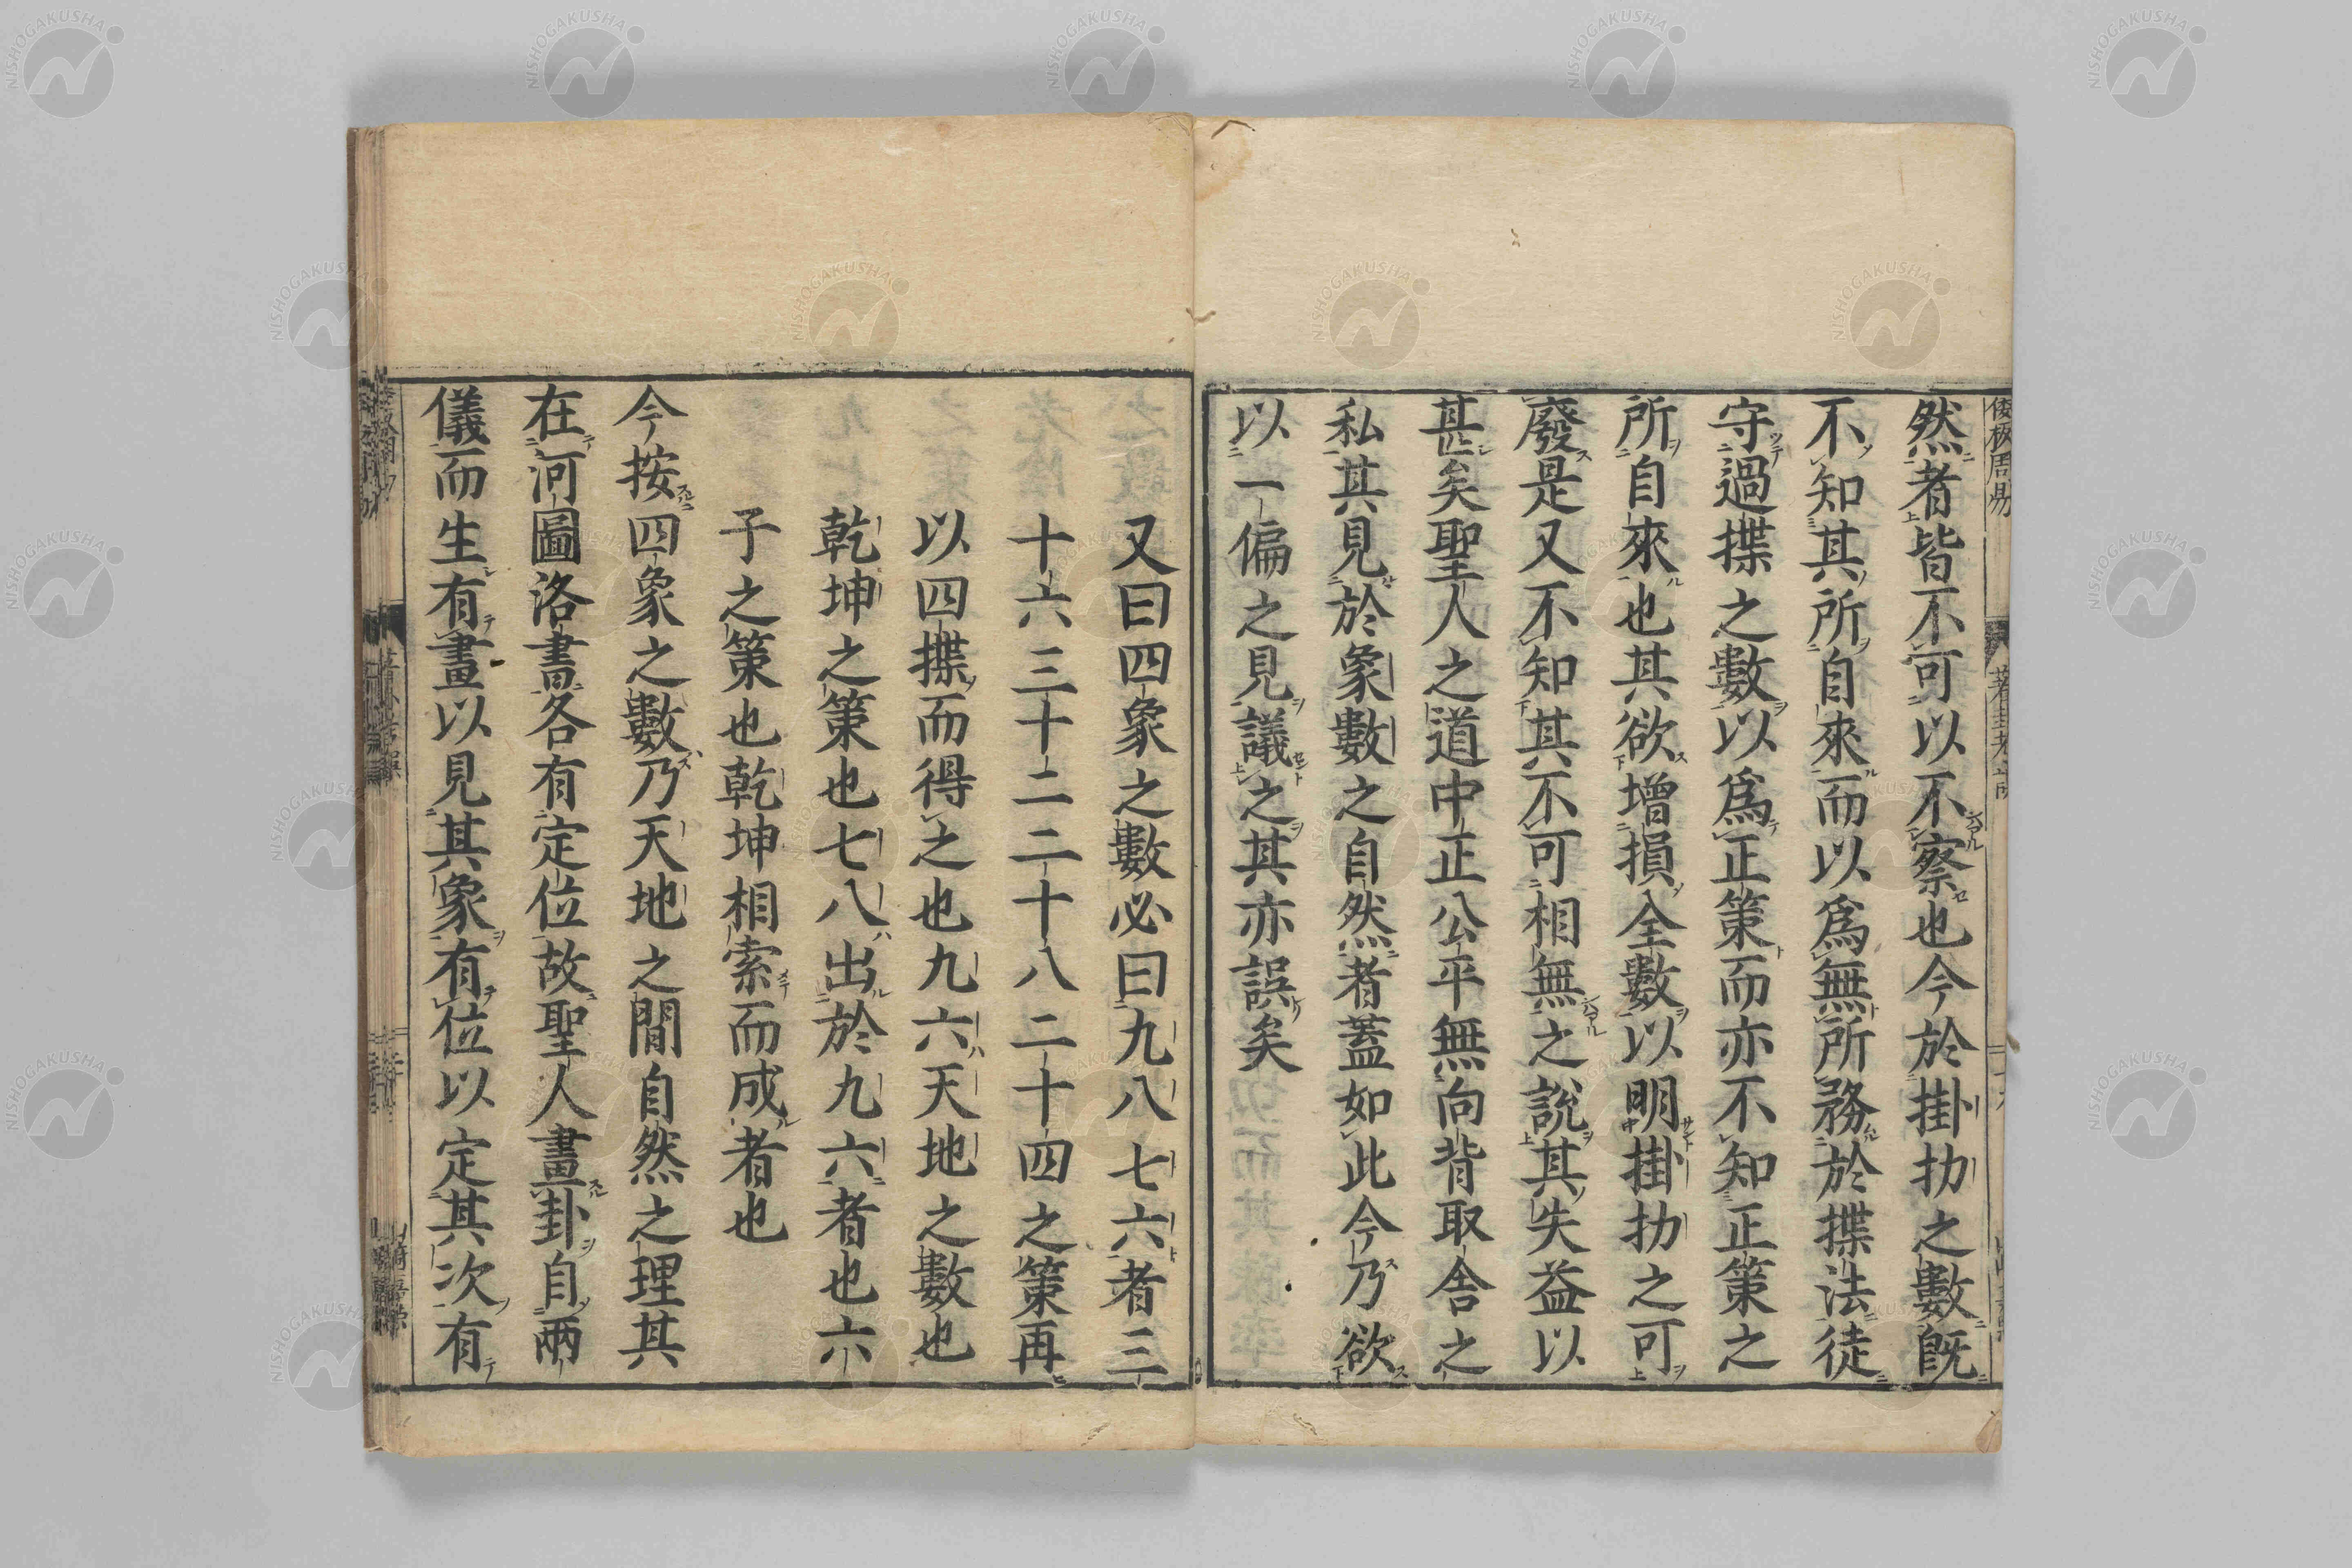 倭板周易
然者皆不可以不察也今於掛扐之數既
不知其所自來而以爲無所務於揲法徒
守過揲之數以爲正策而亦不知正策之
所自來也其欲增損全數以明掛扐之可
廢是又不知其不可相無之說其失益以
甚矣聖人之道中正公平無向背取舍之
私其見於象數之自然者蓋如此今乃欲
以一偏之見議之其亦誤矣
又曰四象之數必曰九八七六者三
十六三十二二十八二十四之策再
以四揲而得之也九六天地之數也
乾坤之策也七八出於九六者也六
子之策也乾坤相索而成者也
今按四象之數乃天地之間自然之理其
在河圖洛書各有定位故聖人畫卦自兩
儀而生有畫以見其象有位以定其次有
NISHOGAKUSHA